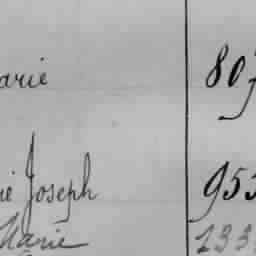 arie 807
ie Joseph 953
Marie 133